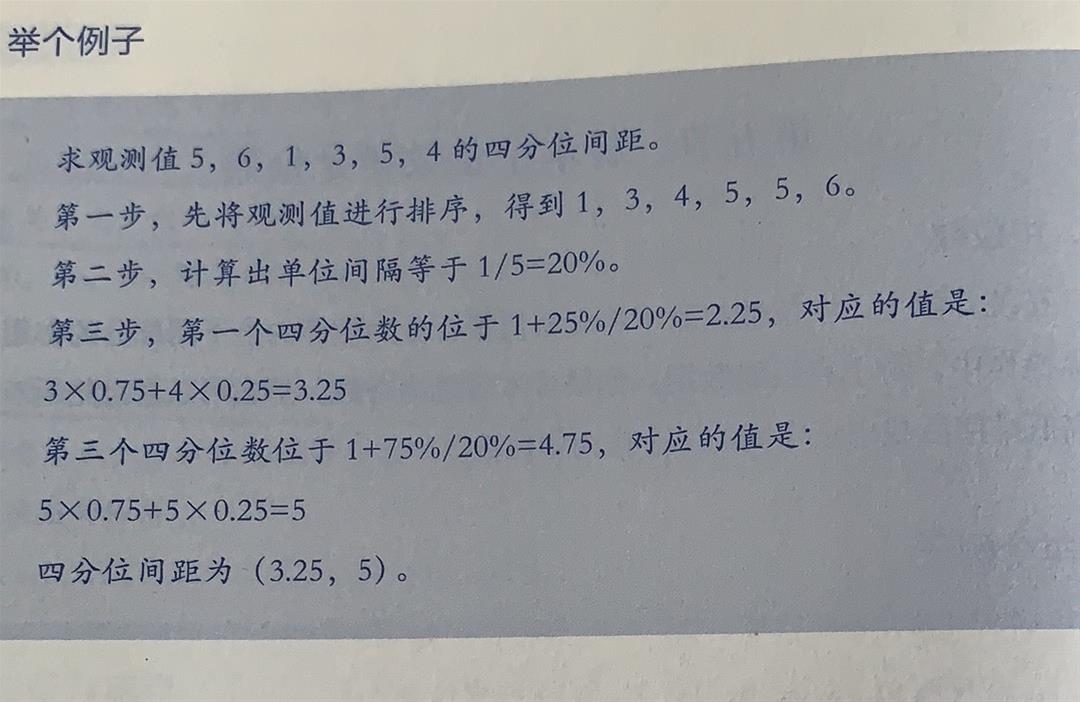 举个例子
求观测值5，6，1，3，5，4的四分位间距。
第一步，先将观测值进行排序，得到1，3，4，5，5，6。
第二步，计算出单位间隔等于1/5=20%。
第三步，第一个四分位数的位于1+25%/20%=2.25，对应的值是：
3×0.75+4×0.25=3.25
第三个四分位数位于1+75%/20%=4.75，对应的值是：
5×0.75+5×0.25=5
四分位间距为（3.25，5）。